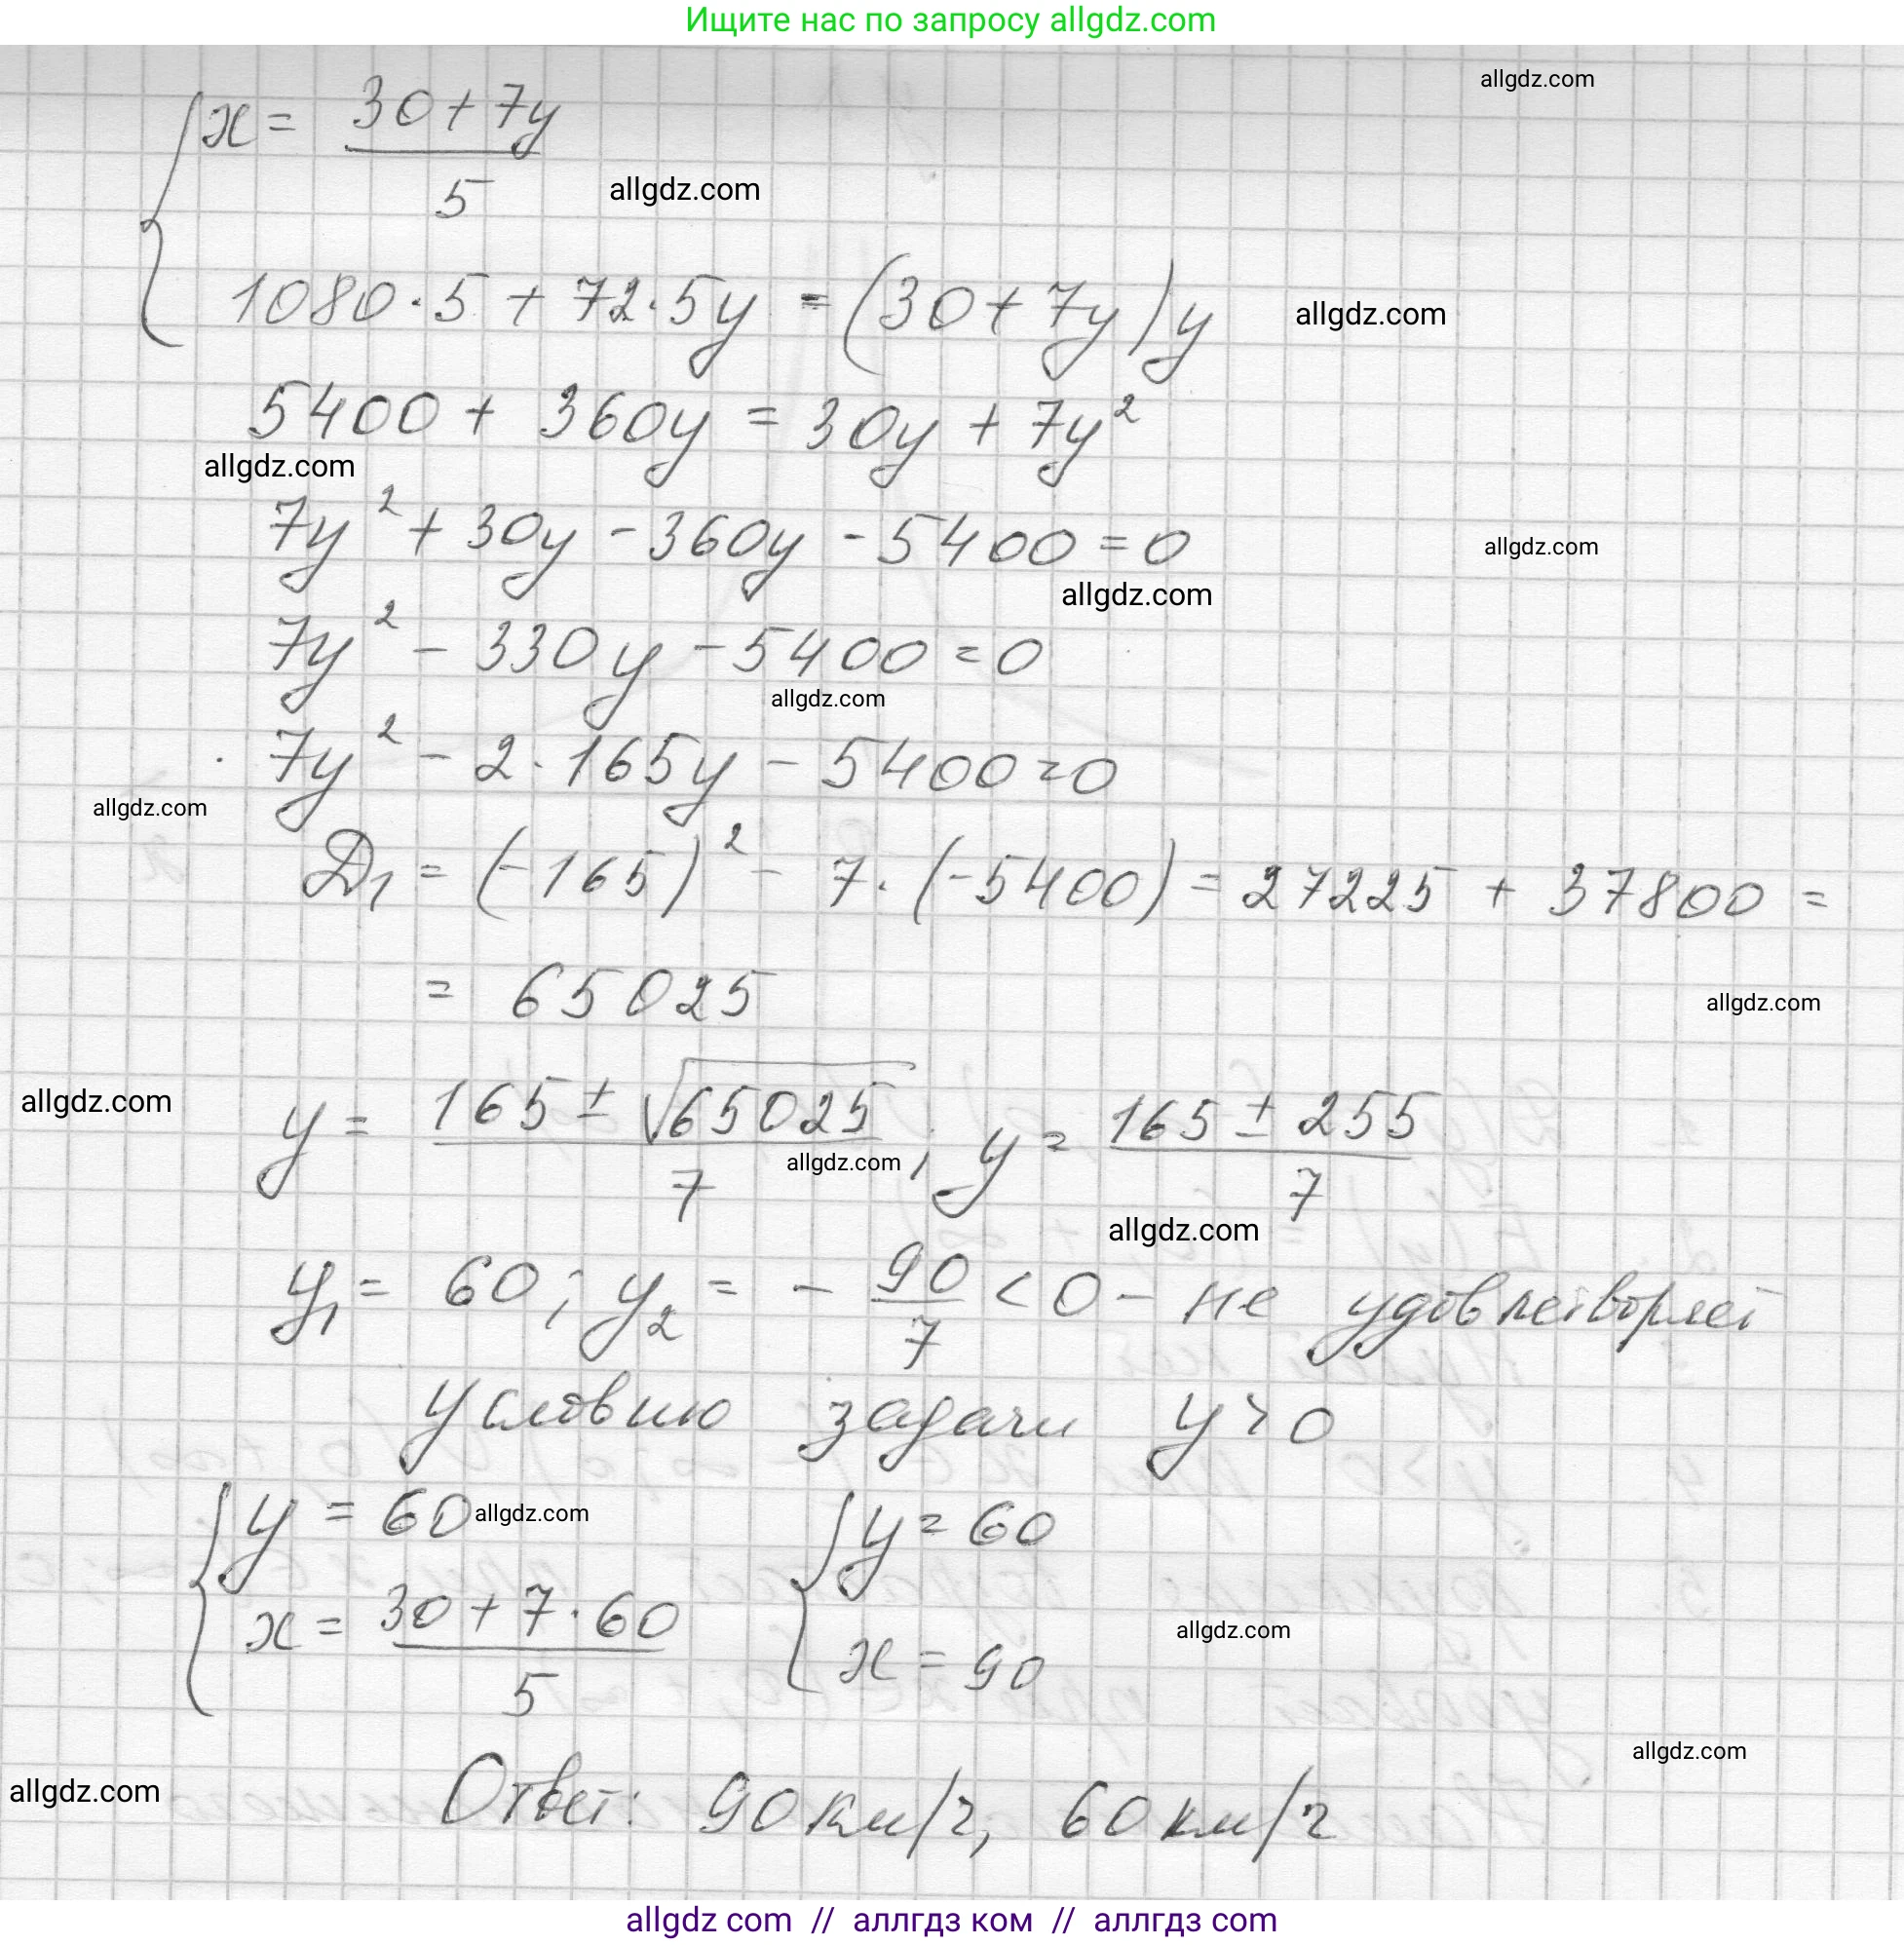 Ищите нас по запросу allgdz.com
allgdz.com
x = 30 + 7y / 5
allgdz.com
1080·5 + 72·5y = (30 + 7y)y
allgdz.com
5400 + 360y = 30y + 7y²
allgdz.com
7y² + 30y - 360y - 5400 = 0
allgdz.com
allgdz.com
7y² - 330y - 5400 = 0
allgdz.com
7y² - 2·165y - 5400 = 0
allgdz.com
D₁ = (-165)² - 7·(-5400) = 27225 + 37800 =
= 65025
allgdz.com
allgdz.com
y = 165 ± √65025 / 7 ; y = 165 ± 255 / 7
allgdz.com
allgdz.com
y₁ = 60; y₂ = - 90/7 < 0 - не удовлетворяет
условию задачи y > 0
y = 60 allgdz.com y = 60
x = 30 + 7·60 / 5 x = 90
allgdz.com
allgdz.com
allgdz.com
Ответ: 90 км/ч, 60 км/ч
allgdz com // аллгдз ком // аллгдз com